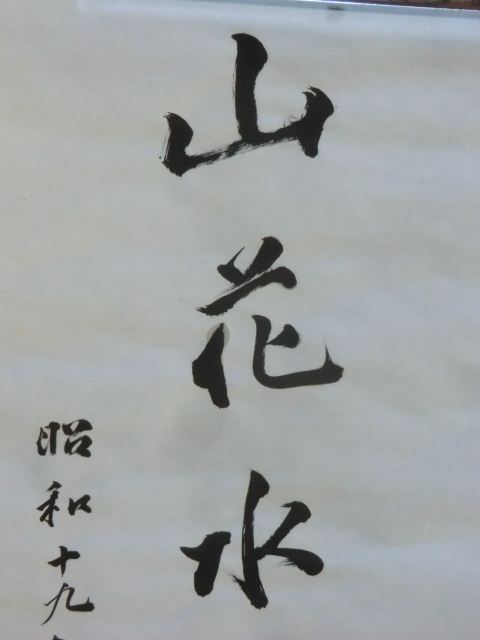 山花水
昭和十九